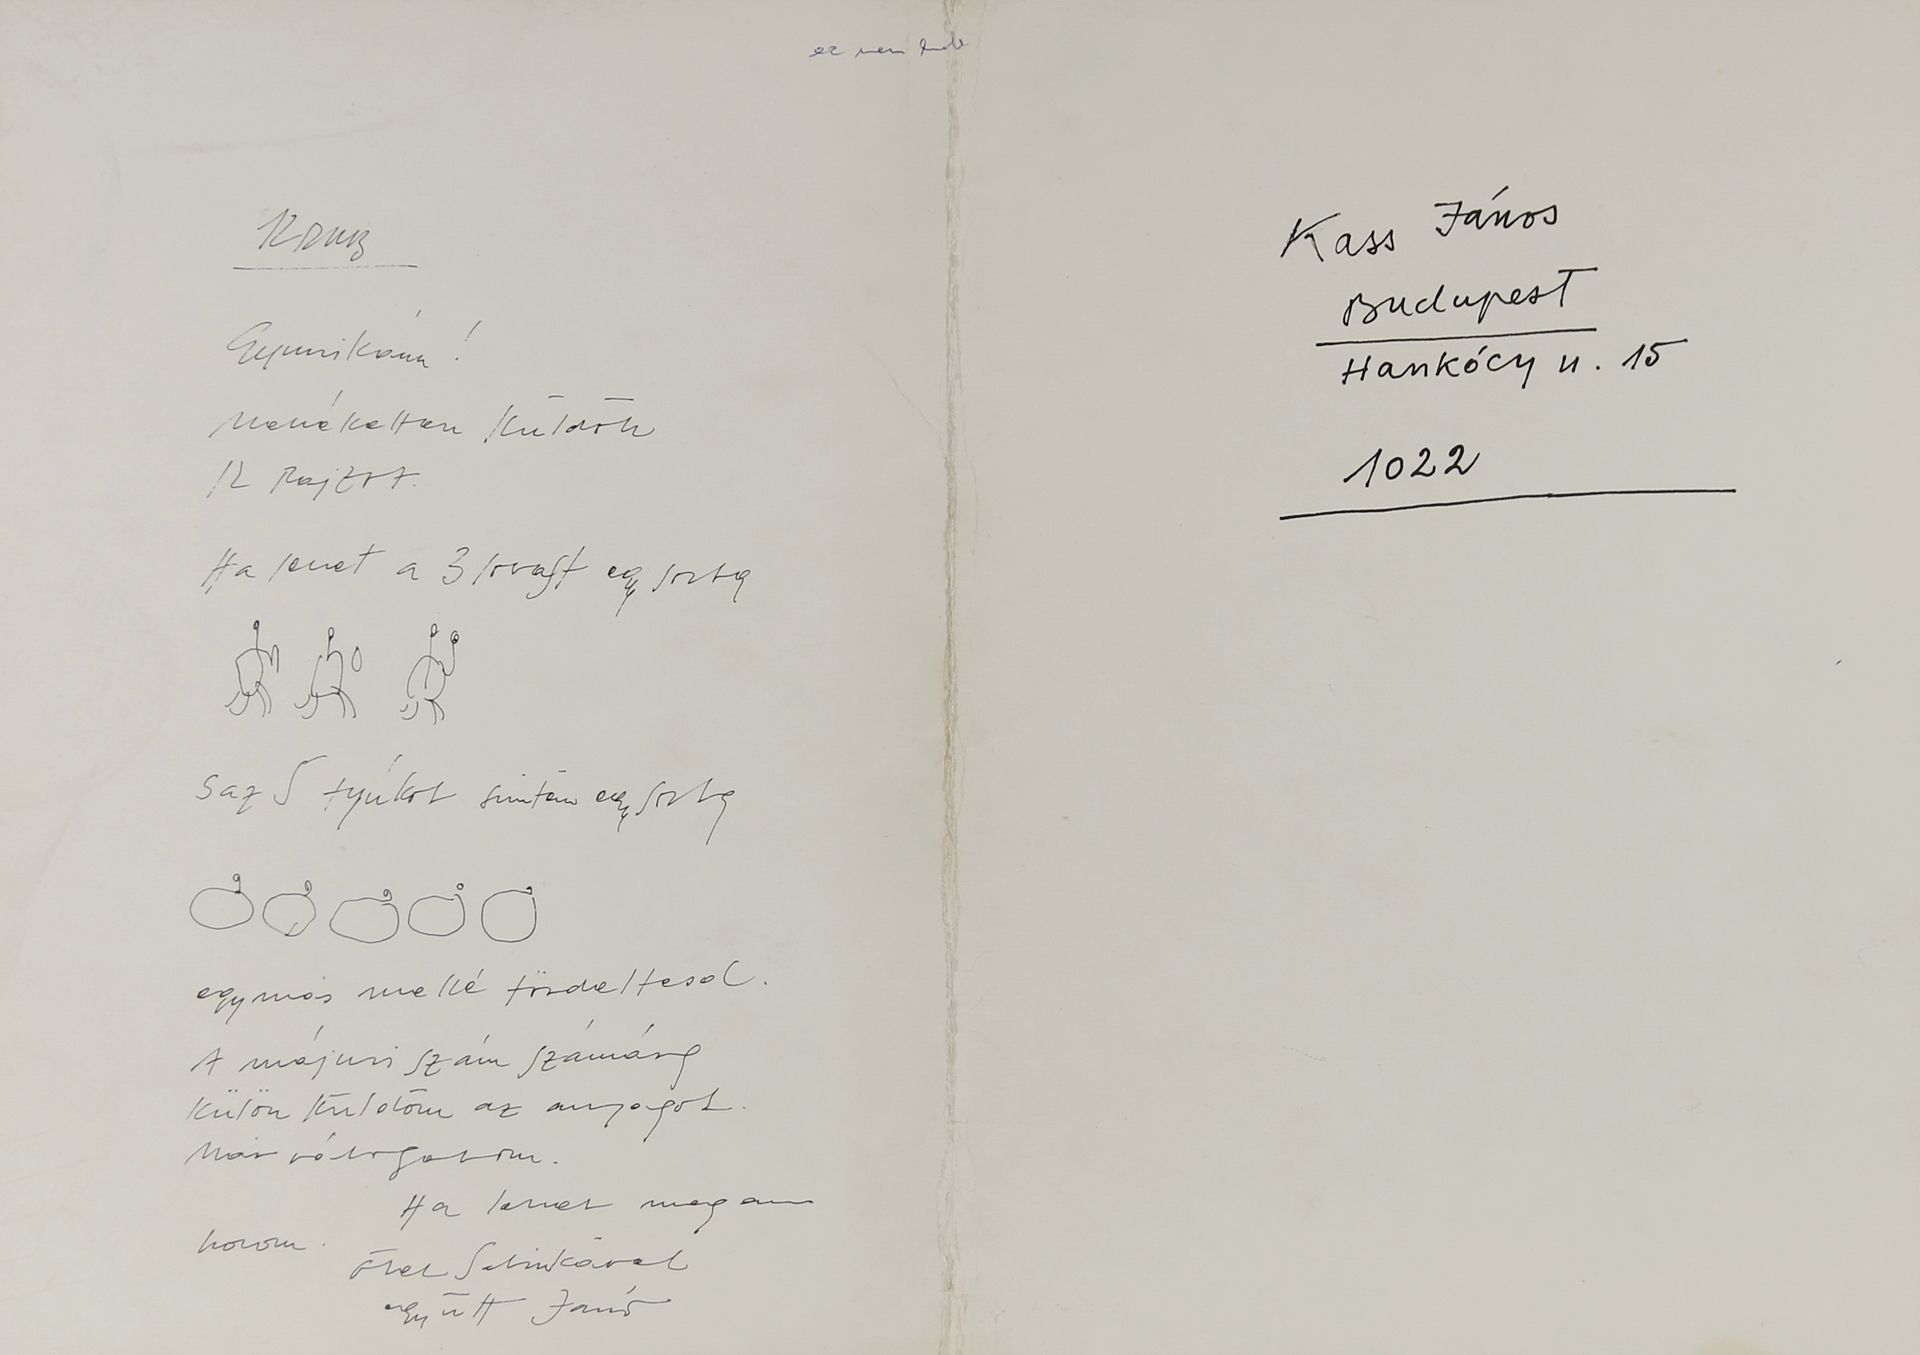 ez nem
Gyurikám!
Mellékelten küldök
12 Rajzot.
Ha lehet a 3 lovast egy sorba
s az 5 tyúkot szintén egy sorba
egymás mellé tördeltesd.
A májusi szám számára
külön küldöm az anyagot.
Már válogatom.
Ha lehet magam
hozom.
ölel
együtt Janó
Kass János
Budapest
Hankóczy u. 15
1022